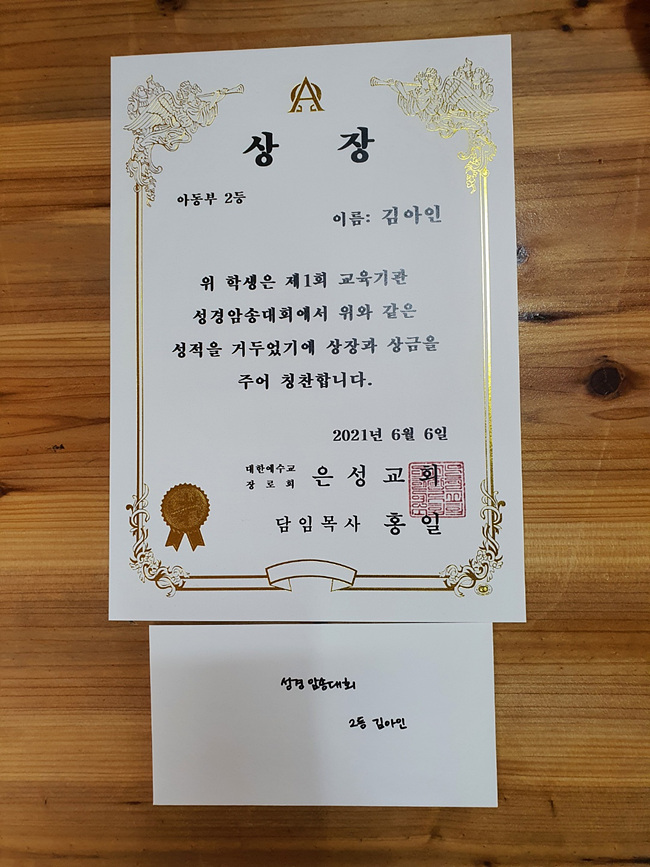 상 장
아동부 2등
이름: 김아인
위 학생은 제1회 교육기관
성경암송대회에서 위와 같은
성적을 거두었기에 상장과 상금을
주어 칭찬합니다.
2021년 6월 6일
대한예수교
장로회 은성교회
담임목사 홍일
성경암송대회
2등 김아인